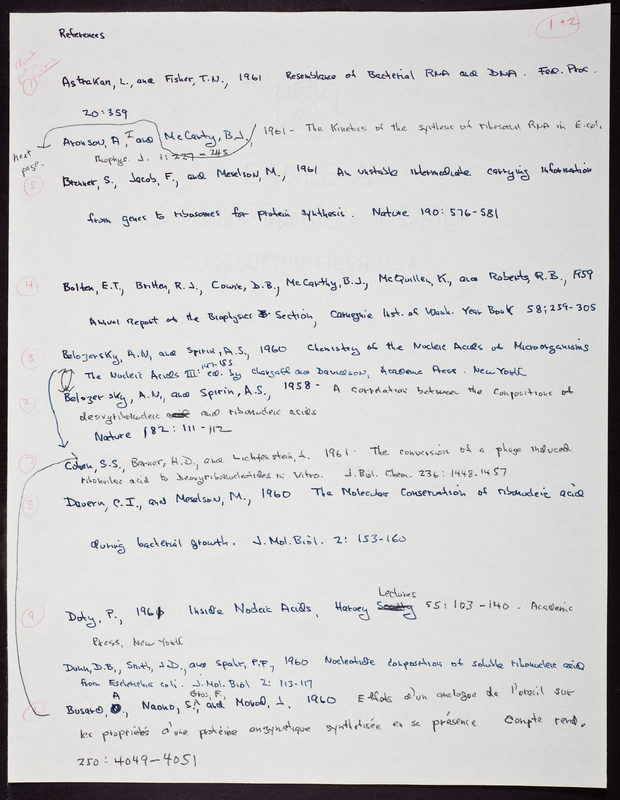 1+2
References
Astrakan, L., and Fisher, T.N., 1961 Resemblance of Bacterial RNA and DNA. Fed. Proc.
20:359
Aronson, A.I. and McCarty, B.J., 1961 - The Kinetics of the synthesis of ribosomal RNA in E.coli,
next page.
Biophys. J. 1: 227-245
5
Brenner, S., Jacob, F., and Meselson, M., 1961 An unstable intermediate carrying information
from genes to ribosomes for protein synthesis. Nature 190: 576-581
4
Bolton, E.T., Britten, R.J., Cowie, D.B., McCarthy, B.J., McQuillen, K., and Roberts, R.B., 1959
Annual Report of the Biophysics Section, Carnegie Inst. of Wash. Year Book 58; 259-305
3
Belozersky, A.N, and Spirin, A.S., 1960 Chemistry of the Nucleic Acids of Microorganisms
147-185
The Nucleic Acids III: ed. by Chargaff and Davidson, Academic Press. New York
2
Belozersky, A.N., and Spirin, A.S., 1958 - A correlation between the compositions of
deoxyribonucleic and ribonucleic acids
Nature 182: 111-112
7
Cohen, S.S., Barner, H.D., and Lichtenstein, J. 1961. The conversion of a phage induced
ribonucleic acid to Deoxyribonucleotides in Vitro. J. Biol. Chem. 236: 1448-1457
8
Davern, C.I., and Meselson, M., 1960 The Molecular Conservation of ribonucleic acid
during bacterial growth. J. Mol. Biol. 2: 153-160
9
Lectures
Doty, P., 1961 Inside Nucleic Acids, Harvey Society 55: 103-140. Academic
Press, New York
Dunn, D.B., Smith, J.D., and Spahr, P.F., 1960 Nucleotide composition of soluble ribonucleic acid
from Escherichia coli. J. Mol. Biol 2: 113-117
Busard, A., Naono, S., Gros, F., and Monod, J. 1960 Effets d'un analogue de l'uracil sur
les propriétés d'une protéine enzymatique synthetisée en sa présence Compte rend.
250: 4049-4051